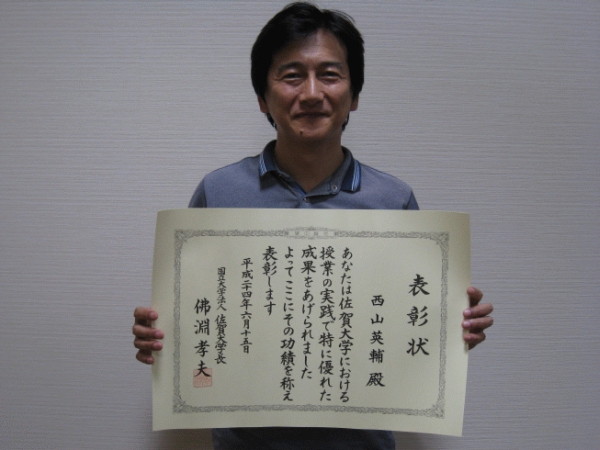 表彰状
西山英輔殿
あなたは佐賀大学における
授業の実践で特に優れた
成果をあげられました
よってここにその功績を称え
表彰します
平成二十四年六月十五日
国立大学法人 佐賀大学長
佛淵孝夫